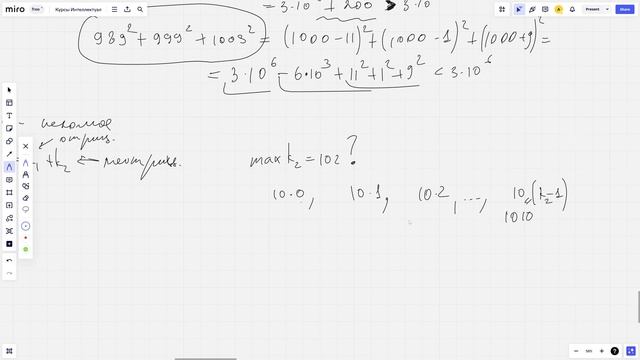 miro free Курсы Интеллектум Present Share
= 3·10⁶ + 200 > 3·10
989² + 999² + 1009² = (1000-11)² + (1000-1)² + (1000+9)² =
= 3·10⁶ - 6·10³ + 11² + 1² + 9² < 3·10⁶
- искомое
отриц.
+ k₂ ← неотриц.
max k₂ = 102 ?
10·0, 10·1, 10·2, ..., 10·(k₂-1)
1010